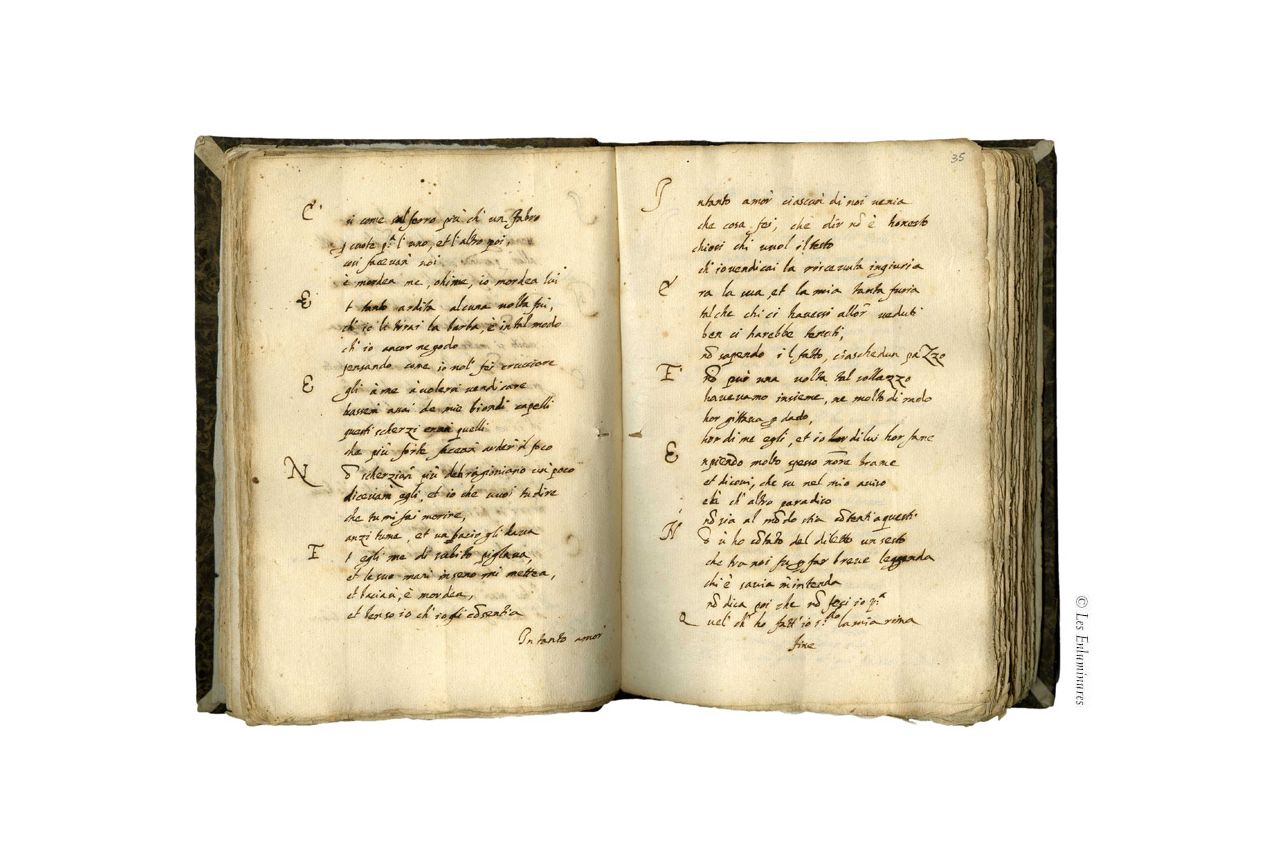 C' si come col ferro più ch' un fabro
et l' uno, et l' altro poi,
cosi facevan noi
e mordea me, ohime, io mordea lui
E t tanto ardita alcuna volta fui,
ch' io le tirai la barba, è in tal modo
ch' io ancor ne godo
pensando come io nol' fei crucciare
E gli à me à volersi vendicare
bassem assai de miei biondi capelli
questi scherzi eran quelli
che più forte facean arder il foco
N õ scherzian più deh ragioniano un' poco
dicevam egli, et io che vuoi tu dire
che tu mi fai morire,
anzi tu me, et un bacio gli dava
E t egli me di subito pigliava,
et le sue mani in seno mi mettea,
et baciava, è mordea,
et ben so io ch' io gli cõsentia
Intanto amor'
35
I ntanto amor' ciascun di noi venia
che cosa fei, che dir nõ è honesto
chiosi chi vuol il testo
ch' io vendicai la ricevuta ingiuria
E ra la sua, et la mia tanta furia
tal che chi ci havessi allor' veduti
ben ci harebbe tenuti,
nõ sapendo il fatto, ciaschedun paZzo
E nõ pur' una volta tal sollazzo
havevamo insieme, ne molto di rado
hor gittava dado,
hor di me egli, et io hor di lui hor fane
E mpiendo molto spesso nõre brame
et dicovi, che se nel mio aviso
età ch' altro paradiso
nõ sia al mõdo stia cõtenti a questi
N õ vi ho cõtato del diletto un' sesto
che tra noi fu far breve leggenda
chi è savia m'intenda
nõ dica poi che nõ feci io
Q uel' ch' ho fatt' io la mia rima
fine
© Les Enluminures